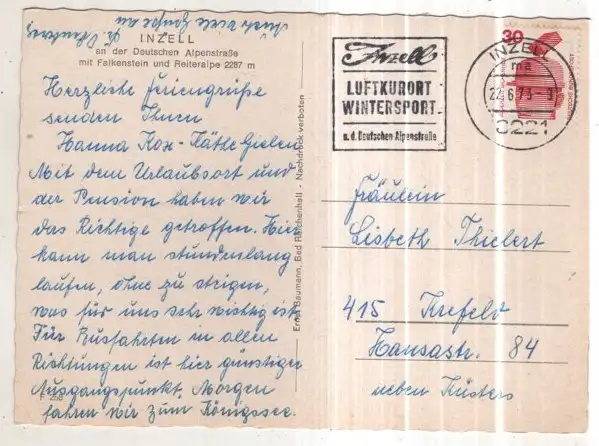 Auch viele Grüße an
Fr. 
INZELL
an der Deutschen Alpenstraße
mit Falkenstein und Reiteralpe 2287 m
Herzliche Feriengrüße
senden Ihnen
Hanna Kox - Käthe Gielen
Mit dem Urlaubsort und
der Pension haben wir
das Richtige getroffen. Hier
kann man stundenlang
laufen, ohne zu steigen,
was für uns sehr wichtig ist.
Für Busfahrten in allen
Richtungen ist hier günstiger
Ausgangspunkt. Morgen
fahren wir zum Königssee.
Ernst Baumann, Bad Reichenhall - Nachdruck verboten
Inzell
LUFTKURORT
WINTERSPORT
a. d. Deutschen Alpenstraße
30
INZELL
ma
22.6.73-9
8221
Fräulein
Lisbeth Thielert
415 Krefeld
Hansastr. 84
neben Küsters